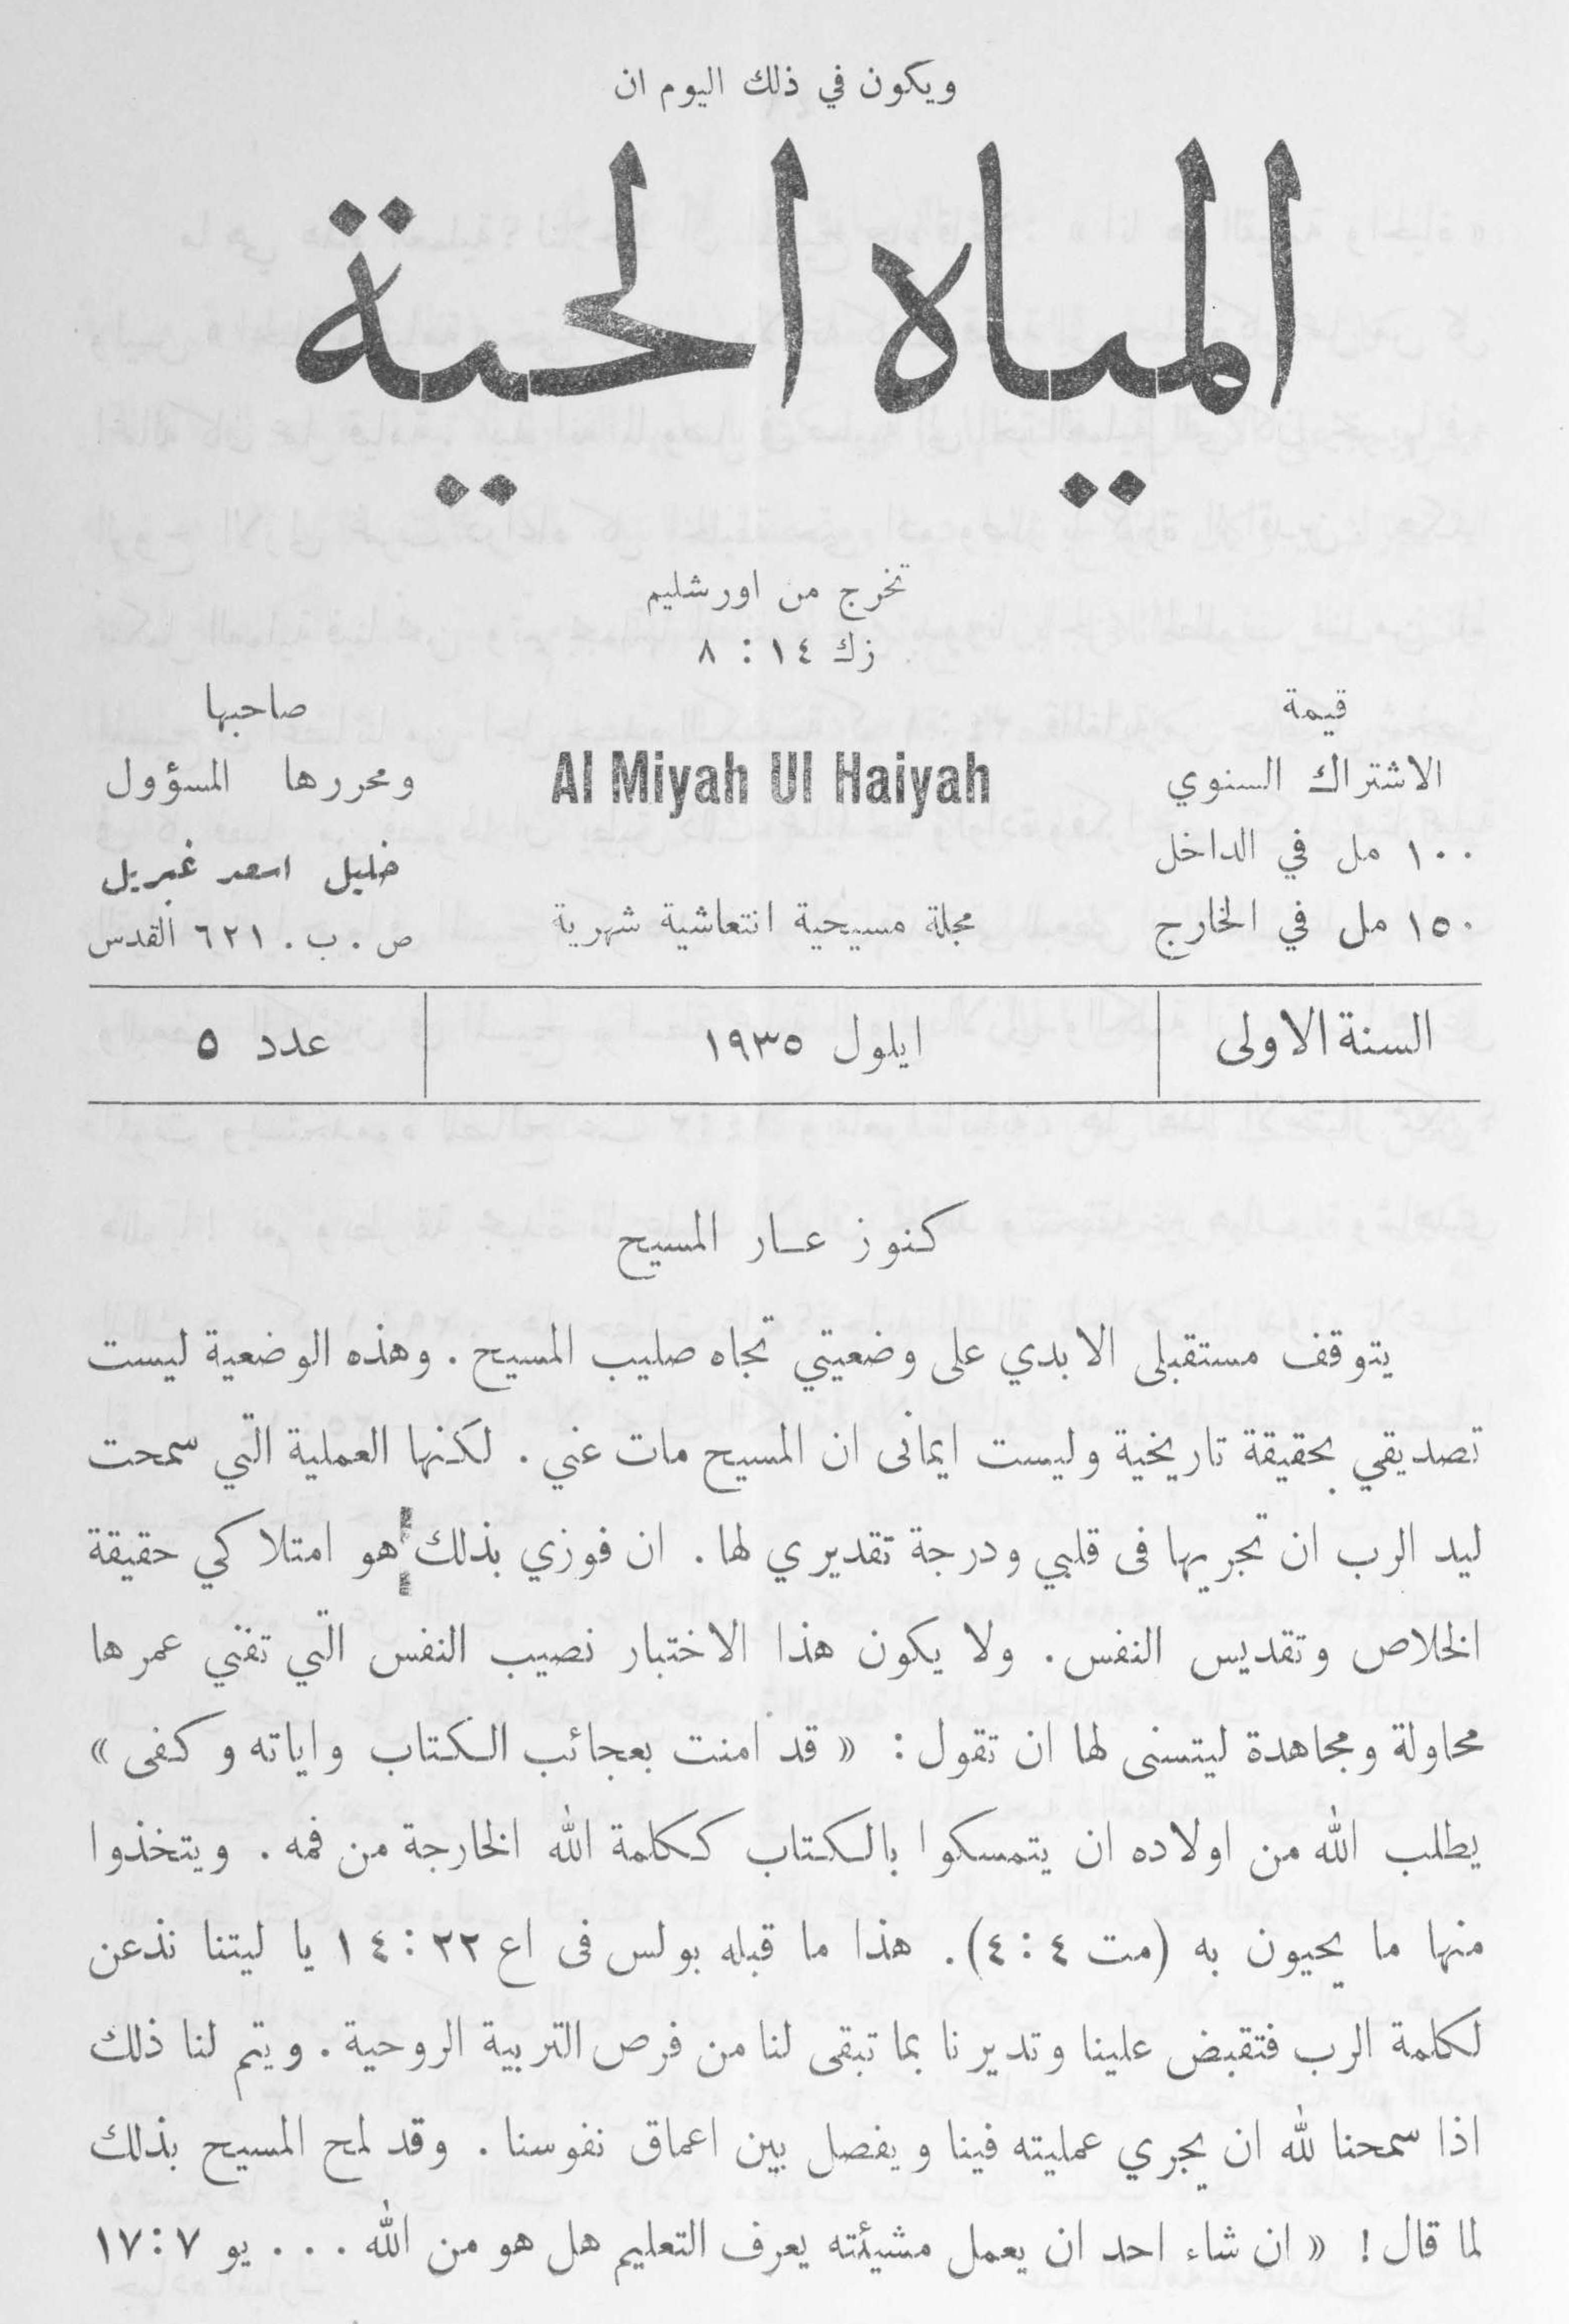 ويكون في ذلك اليوم ان
المياه الحية
تخرج من اورشليم
زك ١٤ : ٨
قيمة
الاشتراك السنوي
١٠٠ مل في الداخل
١٥٠ مل في الخارج
Al Miyah Ul Haiyah
مجلة مسيحية انتعاشية شهرية
صاحبها
ومحررها المسؤول
خليل اسعد غبريل
ص . ب . ٦٢١ القدس
السنة الاولى
ايلول ١٩٣٥
عدد ٥
كنوز عـار المسيح
يتوقف مستقبلى الابدي على وضعيتي تجاه صليب المسيح . وهذه الوضعية ليست
تصديقي بحقيقة تاريخية وليست ايمانى ان المسيح مات عني . لكنها العملية التي سمحت
ليد الرب ان تجريها فى قلبي ودرجة تقديري لها . ان فوزي بذلك هو امتلاكي حقيقة
الخلاص وتقديس النفس . ولا يكون هذا الاختبار نصيب النفس التي تفني عمرها
محاولة ومجاهدة ليتسنى لها ان تقول : « قد امنت بعجائب الكتاب واياته وكفى »
يطلب الله من اولاده ان يتمسكوا بالكتاب ككلمة الله الخارجة من فمه . ويتخذوا
منها ما يحيون به (مت ٤ : ٤) . هذا ما قبله بولس فى اع ٢٢ : ١٤ يا ليتنا نذعن
لكلمة الرب فتقبض علينا وتديرنا بما تبقى لنا من فرص التربية الروحية . ويتم لنا ذلك
اذا سمحنا لله ان يجري عمليته فينا ويفصل بين اعماق نفوسنا . وقد لمح المسيح بذلك
لما قال ! « ان شاء احد ان يعمل مشيئته يعرف التعليم هل هو من الله . . . يو ٧ : ١٧